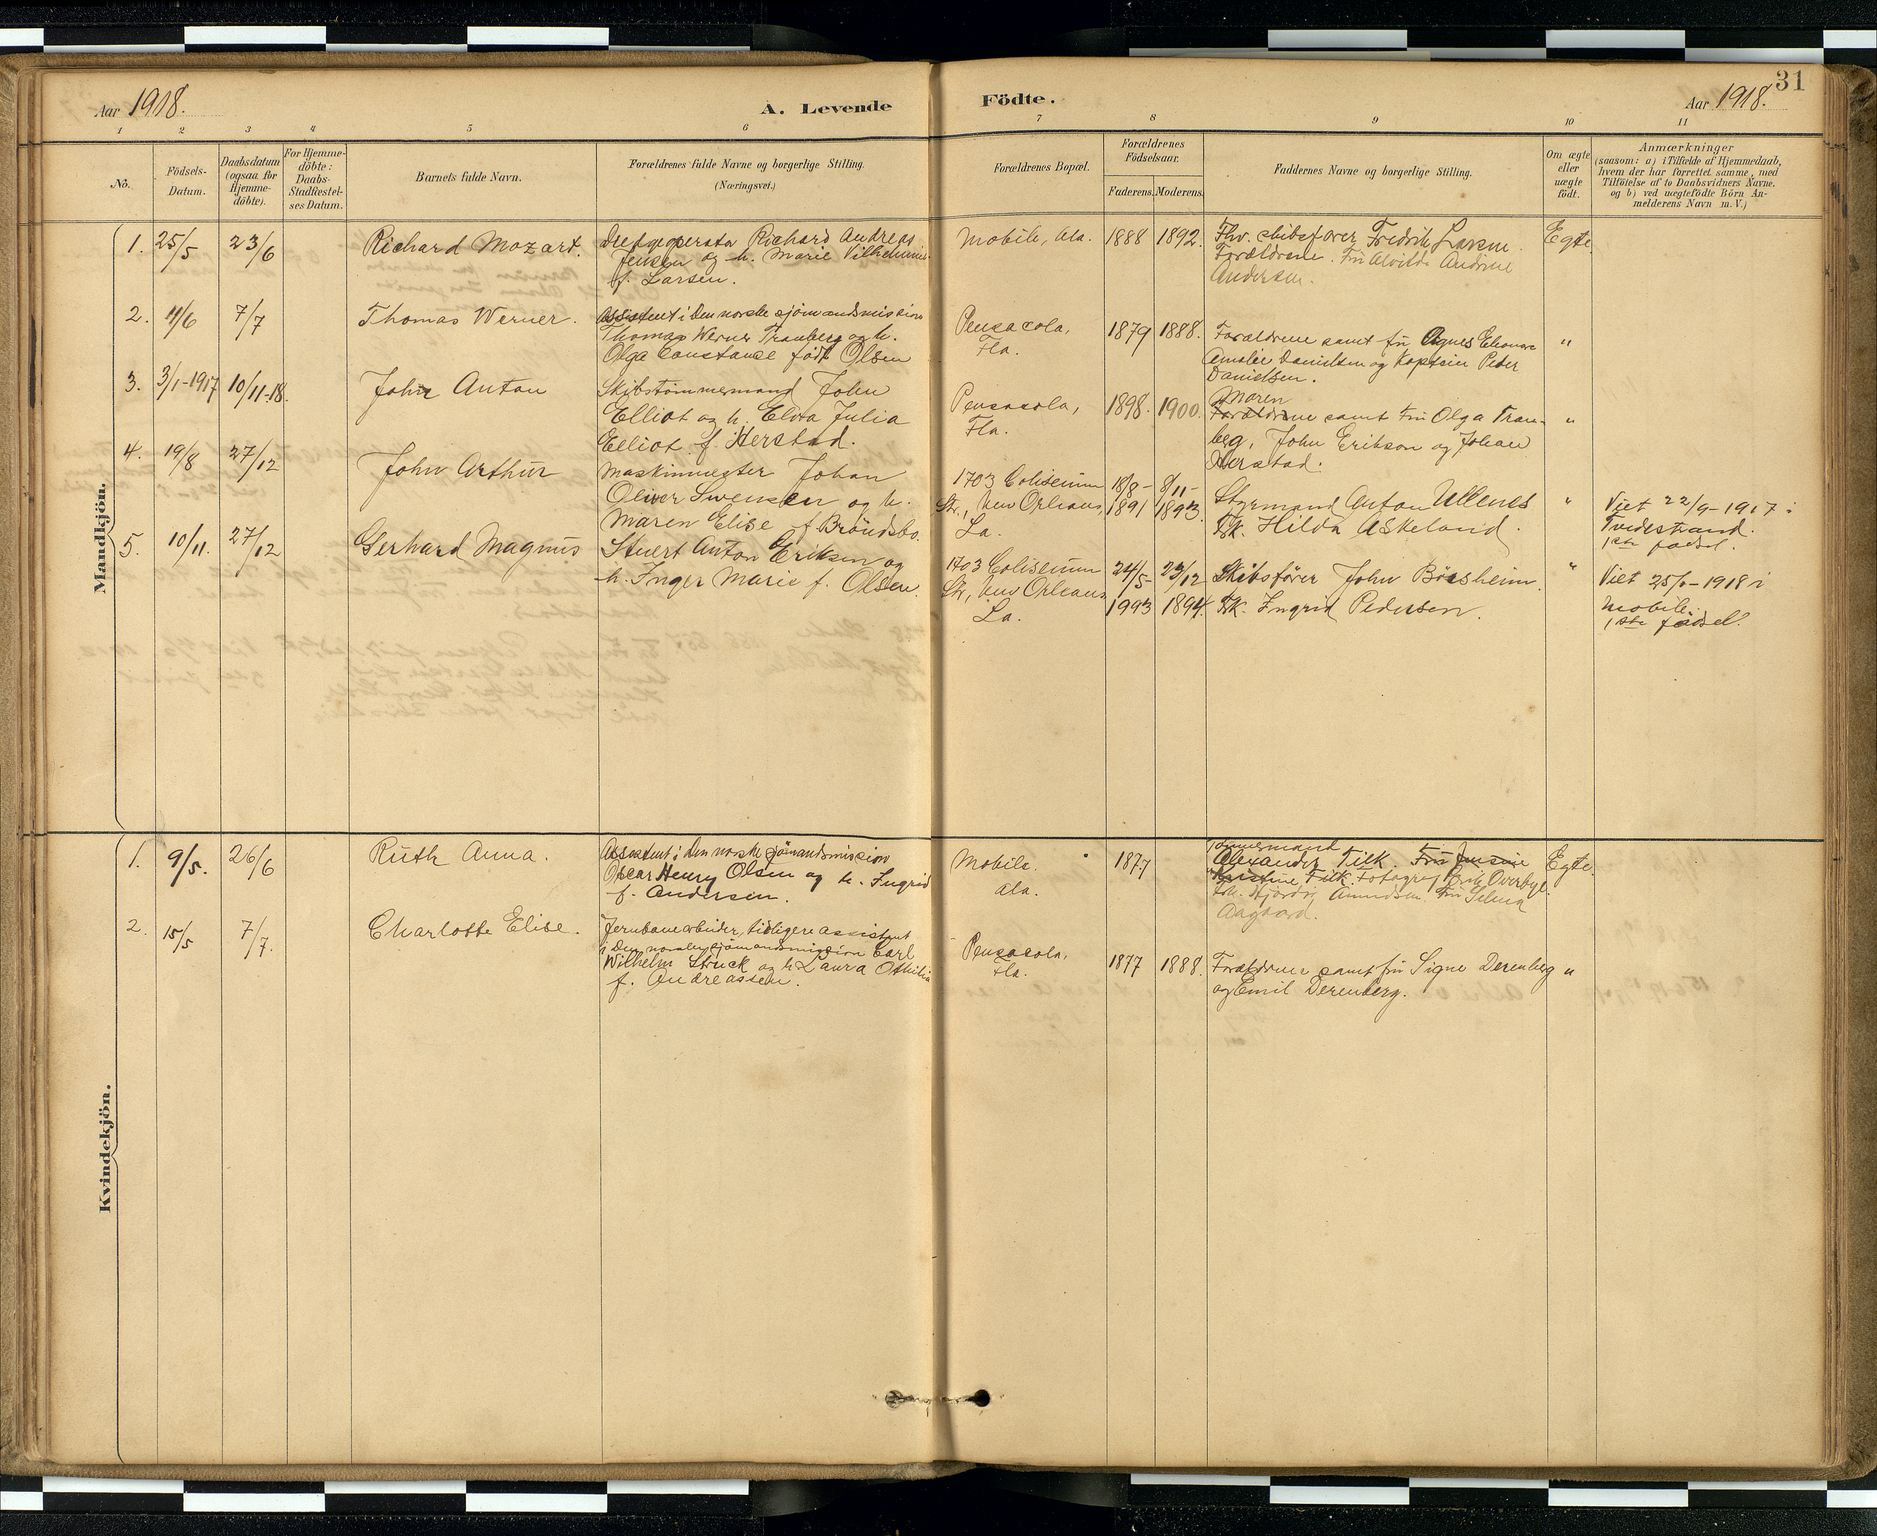 31
Aar 1918.
A. Levende
Födte.
Aar 1918.
1 2 3 4 5 6 7 8 9 10 11
No.
Födsels-
Datum.
Daabsdatum
(ogsaa for
Hjemme-
döbte).
For Hjemme-
döbte:
Daabs-
Stadfæstel-
ses Datum.
Barnets fulde Navn.
Forældrenes fulde Navne og borgerlige Stilling.
(Næringsvei.)
Forældrenes Bopæl.
Forældrenes
Födselsaar.
Faderens. Moderens.
Faddernes Navne og borgerlige Stilling.
Om ægte
eller
uægte
födt.
Anmærkninger
(saasom: a) i Tilfælde af Hjemmedaab,
hvem der har forrettet samme, med
Tilföielse af to Daabsvidners Navne.
og b) ved uægtefödte Börn An-
melderens Navn m. V.)
Mandkjön.
1. 25/5 23/6 Richard Mozart.
Richard Andreas
Jensen og h. Marie Vilhelmine
f. Larsen.
Mobile, Ala. 1888 1892.
Fhv. skibsfører Fredrik Larsen.
Forældrene. Fru Alvilde Andrine
Andersen.
Egte.
2. 11/6 7/7 Thomas Werner.
Assistent i Den norske sjömandsmission
Thomas Werner Tranberg og h.
Olga Constance födt Olsen
Pensacola,
Fla.
1879 1888.
Forældrene samt fru Agnes Eleonore
Amalie Danielsen og Kaptein Peder
Danielsen.
"
3. 3/1-1917 10/11-18. John Anton
Skibstömmermand John
Elliot og h. Elva Julia
Elliot f. Herstad.
Pensacola,
Fla.
1898. 1900.
Maren
Forældrene samt Fru Olga Tran-
berg, John Erikson og Johan
Herstad.
"
4. 19/8 27/12 John Arthur
Maskinmester Johan
Oliver Swensen og h.
Maren Elise f. Bröndsbo.
1703 Coliseum
Str., New Orleans,
La.
18/8- 8/11-
1891 1893.
Styrmand Anton Ullenes
Frk. Hilda Askeland.
"
Viet 22/9-1917 i
Tvedestrand.
1ste födsel.
5. 10/11. 27/12 Gerhard Magnus
Stuert Anton Eriksen og
h. Inger Marie f. Olsen.
1703 Coliseum
Str., New Orleans
La.
24/5- 23/12
1993 1894.
Skibsfører John Börsheim
Frk. Ingrid Pedersen.
"
Viet 25/1-1918 i
Mobile.
1ste födsel.
Kvindekjön.
1. 9/5. 26/6 Ruth Anna.
Assistent i Den norske sjömandsmission
Oscar Henry Olsen og h. Ingrid
f. Andersen.
Mobile.
Ala.
1877
Tömmermand
Alexander Filk. Fru Jensine
Kristine Filk. Fotograf Erik Overbye.
Amundsen. Fru Selma
Aagaard.
Egte.
2. 15/5 7/7. Charlotte Elise.
Jernbanearbeider, tidligere assistent
i Den norske sjömandsmission Carl
Wilhelm Struck og h. Laura Othilie
f. Andreassen.
Pensacola,
Fla.
1877 1888.
Forældrene samt fru Signe Derenberg
og Emil Derenberg.
"